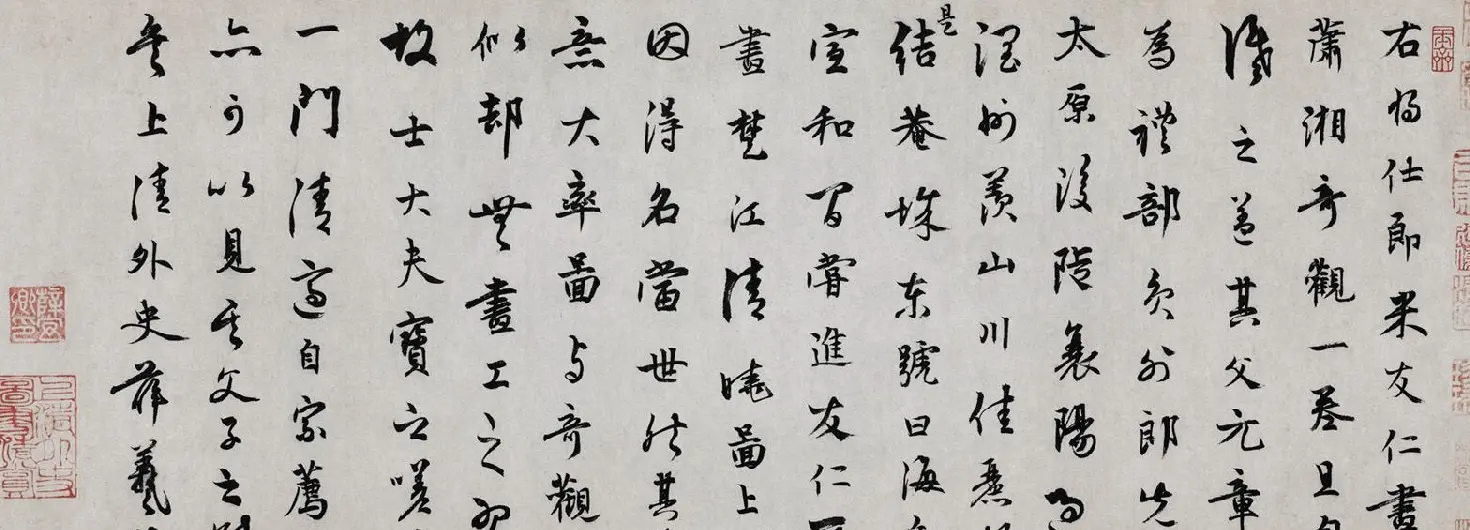 右將仕郎米友仁書
瀟湘奇觀一卷且自
識之蓋其父元章
為禮部員外郎先
太原後襄陽過
潤州羨山川佳麗
是結菴城東號曰海
宣和間嘗進友仁
畫楚江清曉圖上
因得名當世然其
大率圖与奇觀
似却無畫工之習
故士大夫寶之嗟
一門清適自家薦
亦可以見其父子之
矣上清外史薛羲
薛玄卿印